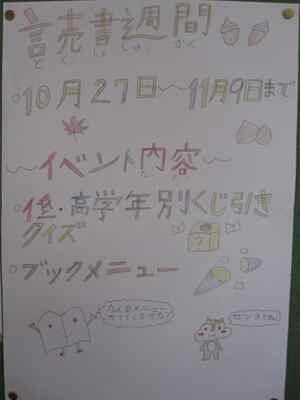 読書週間
どくしょしゅうかん
10月27日〜11月9日まで
〜イベント内容〜
低・高学年別くじ引き
クイズ
ブックメニュー